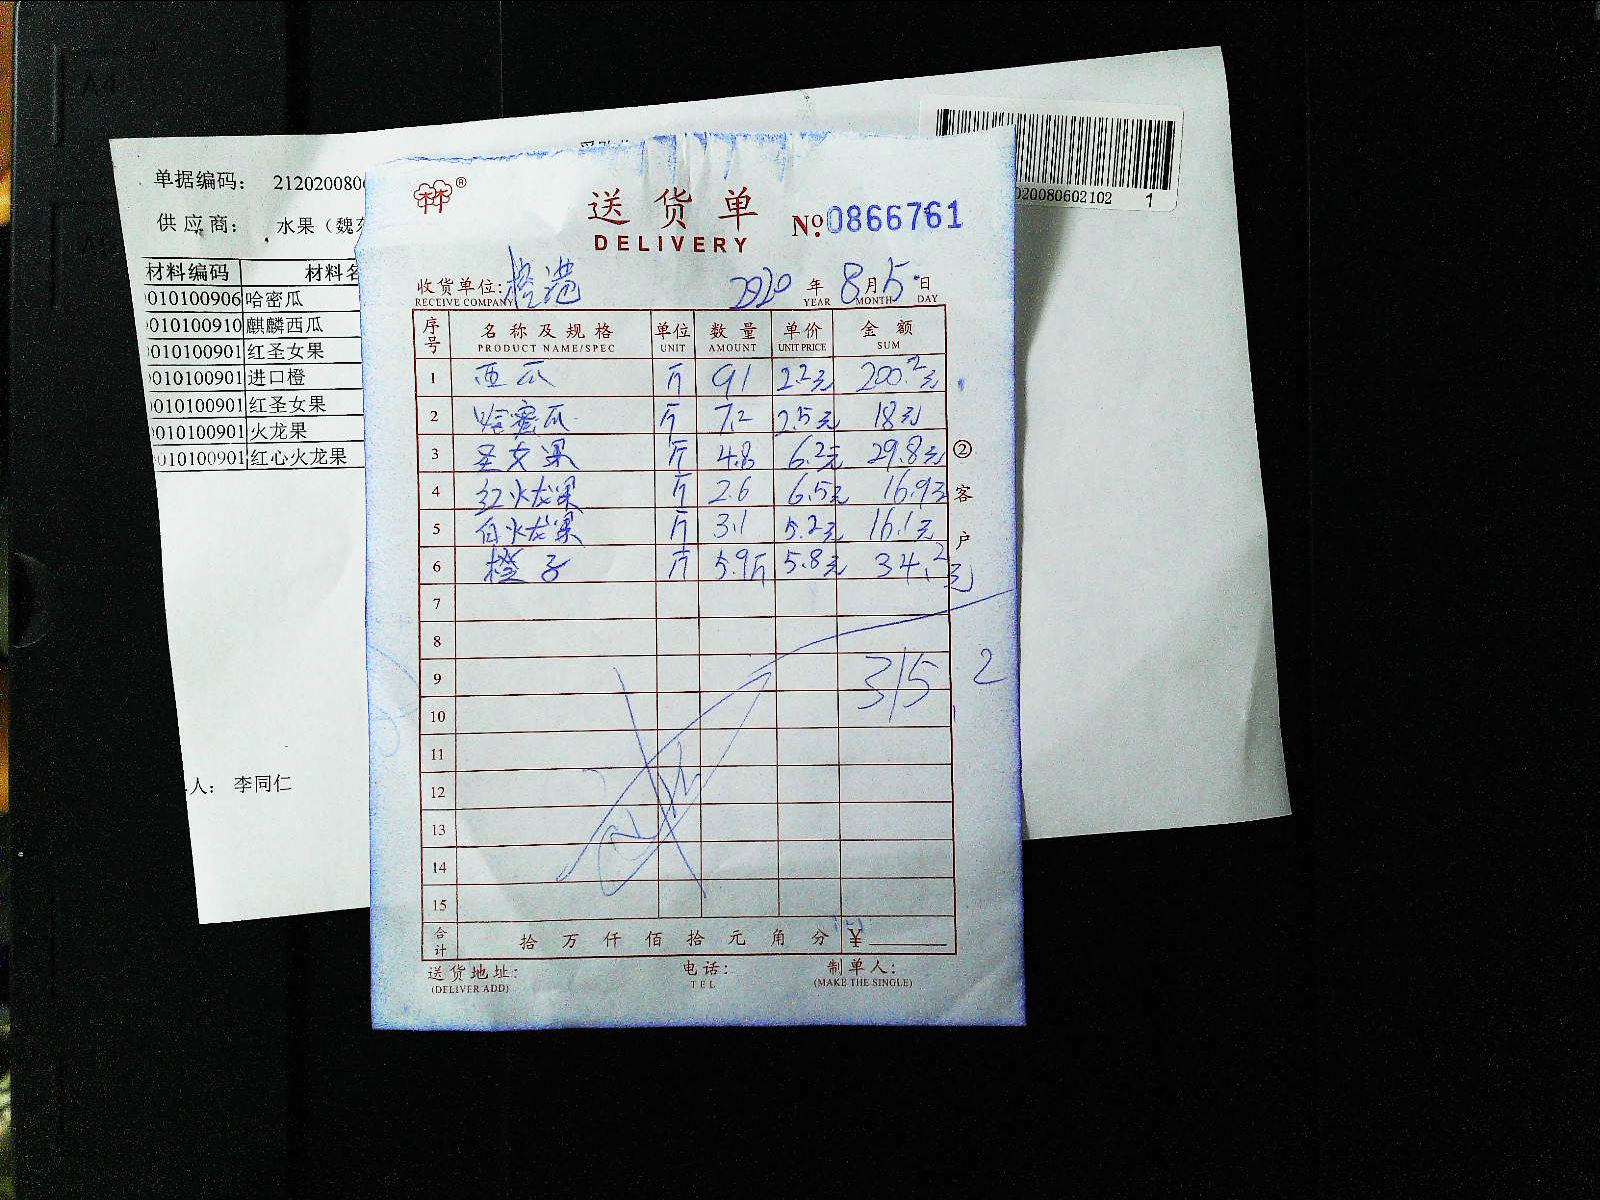 单据编码: 212020080
供应商: 水果（魏
020080602102 1
材料编码 材料名
010100906 哈密瓜
010100910 麒麟西瓜
010100901 红圣女果
010100901 进口橙
010100901 红圣女果
010100901 火龙果
010100901 红心火龙果
人: 李同仁
林®
送货单
DELIVERY
№ 0866761
收货单位: 橙港 2020 年 8 月 5 日
RECEIVE COMPANY YEAR MONTH DAY
序号 名称及规格 单位 数量 单价 金额
PRODUCT NAME/SPEC UNIT AMOUNT UNIT PRICE SUM
1 西瓜 斤 91 2.2元 200.2元
2 哈密瓜 斤 7.2 2.5元 18元
3 圣女果 斤 4.8 6.2元 29.8元
4 红火龙果 斤 2.6 6.5元 16.9元
5 白火龙果 斤 3.1 5.2元 16.1元
6 橙子 斤 5.9斤 5.8元 34.2元
7
8
9 315 2
10
11
12
13
14
15
合计 拾 万 仟 佰 拾 元 角 分 ¥
②客户
送货地址: 电话: 制单人:
(DELIVER ADD) TEL (MAKE THE SINGLE)